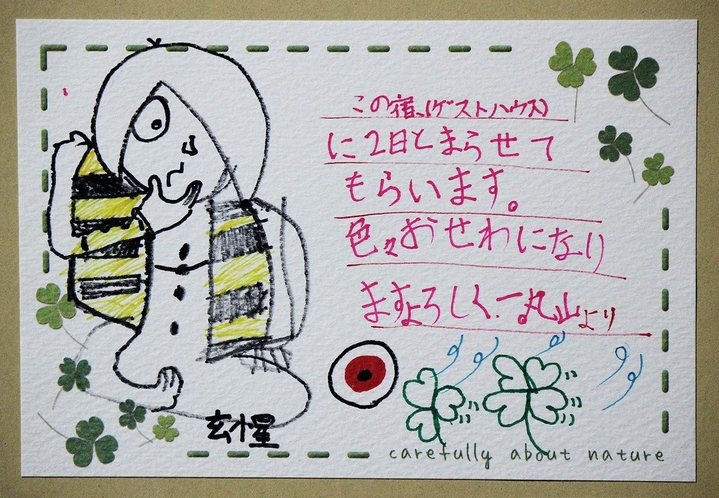 この宿、(ゲストハウス)
に2日とまらせて
もらいます。
色々おせわになり
ますよろしく、丸山より
carefully about nature